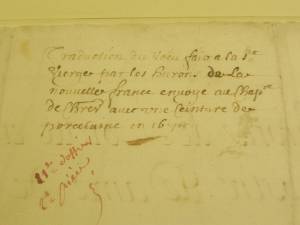 Traduction du Voeu fait a la Ste
Vierge par les hurons de la
nouvelle france envoyé au Chapre
de Chres avec une Ceinture de
porcelaine en 16
11e